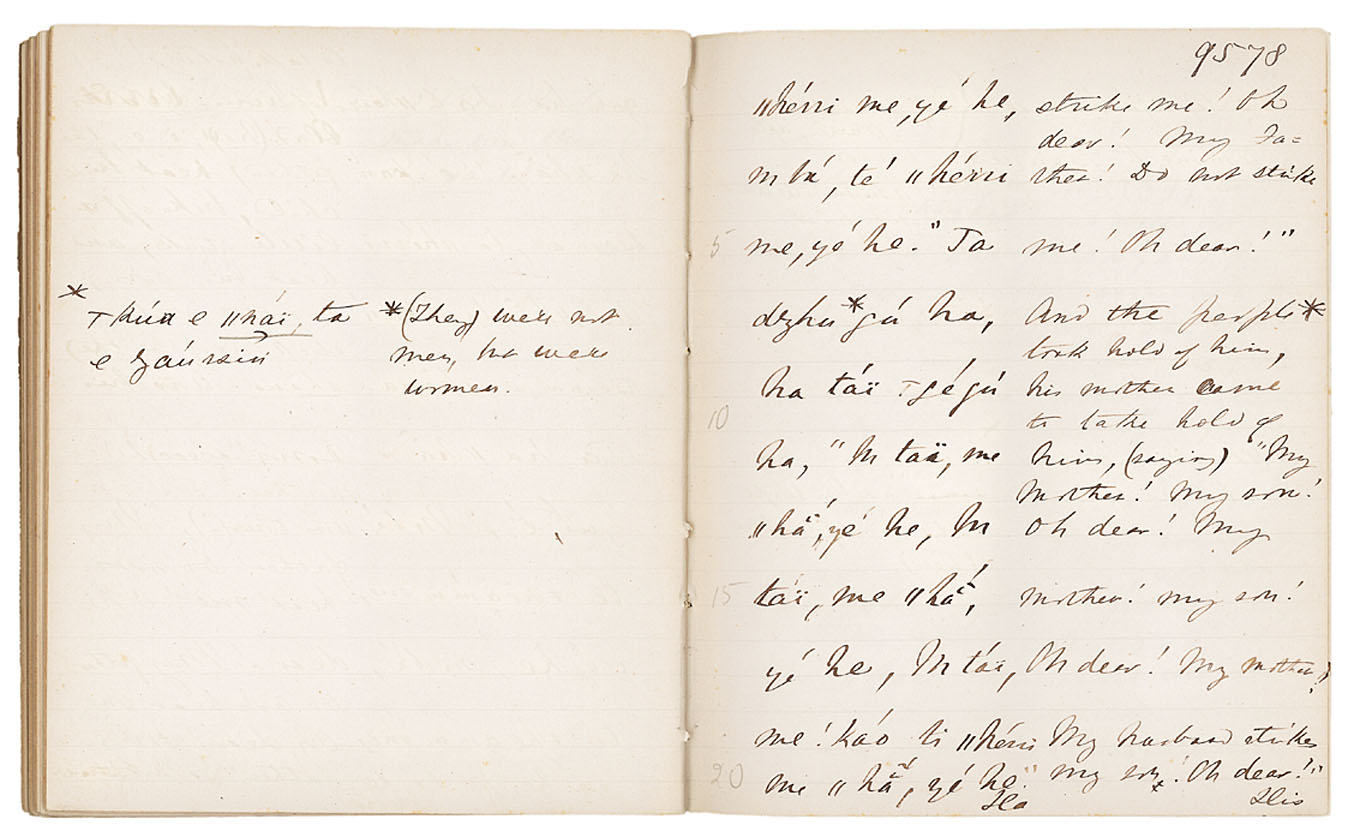 * T kúa e ǁháï, ta *(They) were not
e ʒáussin men, but were
women.
9578
ǁhérri me, yé he, strike me! Oh
dear! My Fa=
m bá, té ǁhérri ther! Do not strike
5 me, yé he." Ta me! Oh dear!"
dzhu *gú ha, And the people*
took hold of him,
ha táï T gé gú his mother came
10 to take hold of
ha, "M taï, me him, (saying) "My
mother! My son!
ǁhä́, yé he, M Oh dear! My
15 táï, me ǁhä́, mother! my son!
yé he, M táï, Oh dear! My mother!
me !káo ti ǁhérri My husband strikes
20 me ǁhä́, yé he." my son! Oh dear!"
Ha His